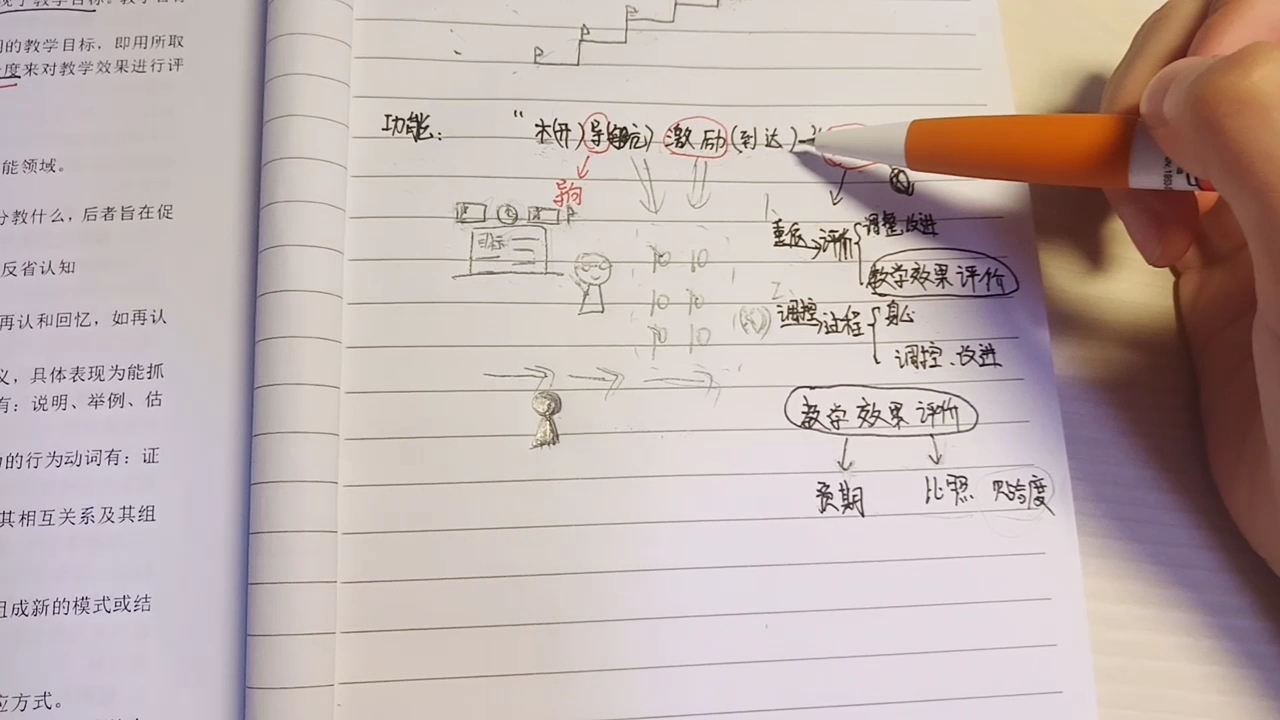 的教学目标，即用所取
度来对教学效果进行评
能领域。
分教什么，后者旨在促
反省认知
再认和回忆，如再认
义，具体表现为能抓
有：说明、举例、估
的行为动词有：证
其相互关系及其组
组成新的模式或结
应方式。
功能：
“ 木(开) 导(航) 激励 (到达)
导向
目标
1、
重反→评价
调整、改进
教学效果评价
2、
调控→过程
身心
调控、改进
教学效果评价
预期
比照 贴合度